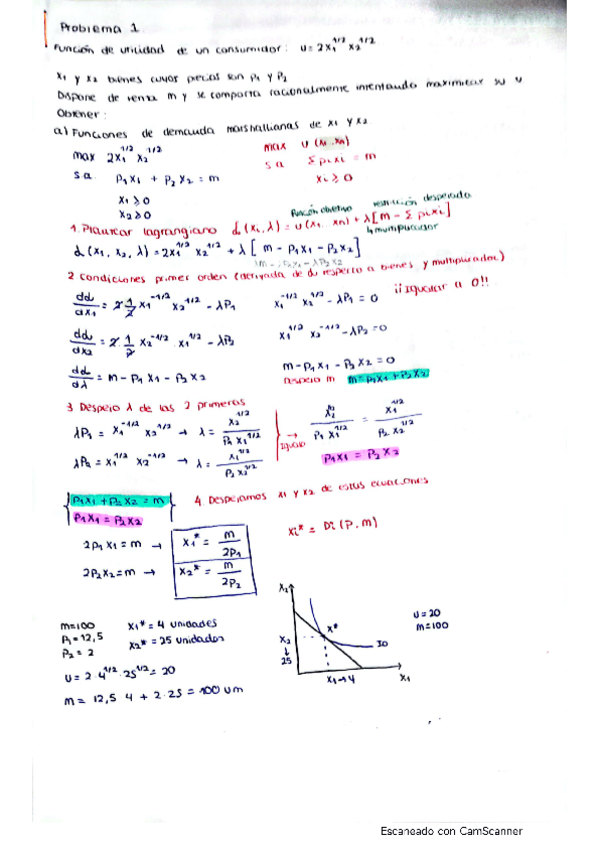 Problema 1
Función de utilidad de un consumidor: U = 2x₁^1/2 x₂^1/2
x₁ y x₂ bienes cuyos precios son p₁ y p₂
Dispone de renta m y se comporta racionalmente intentando maximizar su U
Obtener:
a) Funciones de demanda marshallianas de x₁ y x₂
max 2x₁^1/2 x₂^1/2
max U(x₁...xn)
s.a. P₁x₁ + P₂x₂ = m
s.a Σpixi = m
x₁ ≥ 0
xi ≥ 0
x₂ ≥ 0
Función objetivo restricción despejada
1. Plantear lagrangiano L(xi, λ) = U(x₁...xn) + λ[m - Σpixi]
↳ multiplicador
L(x₁, x₂, λ) = 2x₁^1/2 x₂^1/2 + λ[m - P₁x₁ - P₂x₂]
2 Condiciones primer orden (derivada de L respecto a bienes y multiplicador)
dL/dx₁ = 2 1/2 x₁^-1/2 x₂^1/2 - λP₁
x₁^-1/2 x₂^1/2 - λP₁ = 0
¡¡Igualar a 0!!
dL/dx₂ = 2 1/2 x₂^-1/2 · x₁^1/2 - λP₂
x₁^1/2 x₂^-1/2 - λP₂ = 0
dL/dλ = m - P₁x₁ - P₂x₂
m - P₁x₁ - P₂x₂ = 0
Despejo m m = P₁x₁ + P₂x₂
3 Despejo λ de las 2 primeras
λP₁ = x₁^-1/2 x₂^1/2 → λ = x₂^1/2 / P₁x₁^1/2
λP₂ = x₁^1/2 x₂^-1/2 → λ = x₁^1/2 / P₂x₂^1/2
→ Igualo
x₂^1/2 / P₁x₁^1/2 = x₁^1/2 / P₂x₂^1/2
P₁x₁ = P₂x₂
P₁x₁ + P₂x₂ = m
P₁x₁ = P₂x₂
4. Despejamos x₁ y x₂ de estas ecuaciones
2P₁x₁ = m → x₁* = m/2P₁
xi* = Di(P, m)
2P₂x₂ = m → x₂* = m/2P₂
m = 100 x₁* = 4 unidades
P₁ = 12,5 x₂* = 25 unidades
P₂ = 2
U = 2 · 4^1/2 · 25^1/2 = 20
m = 12,5 · 4 + 2 · 25 = 100 um
x₂
x*
x₂
↓
25
x₁→4
x₁
U = 20
m = 100
Escaneado con CamScanner